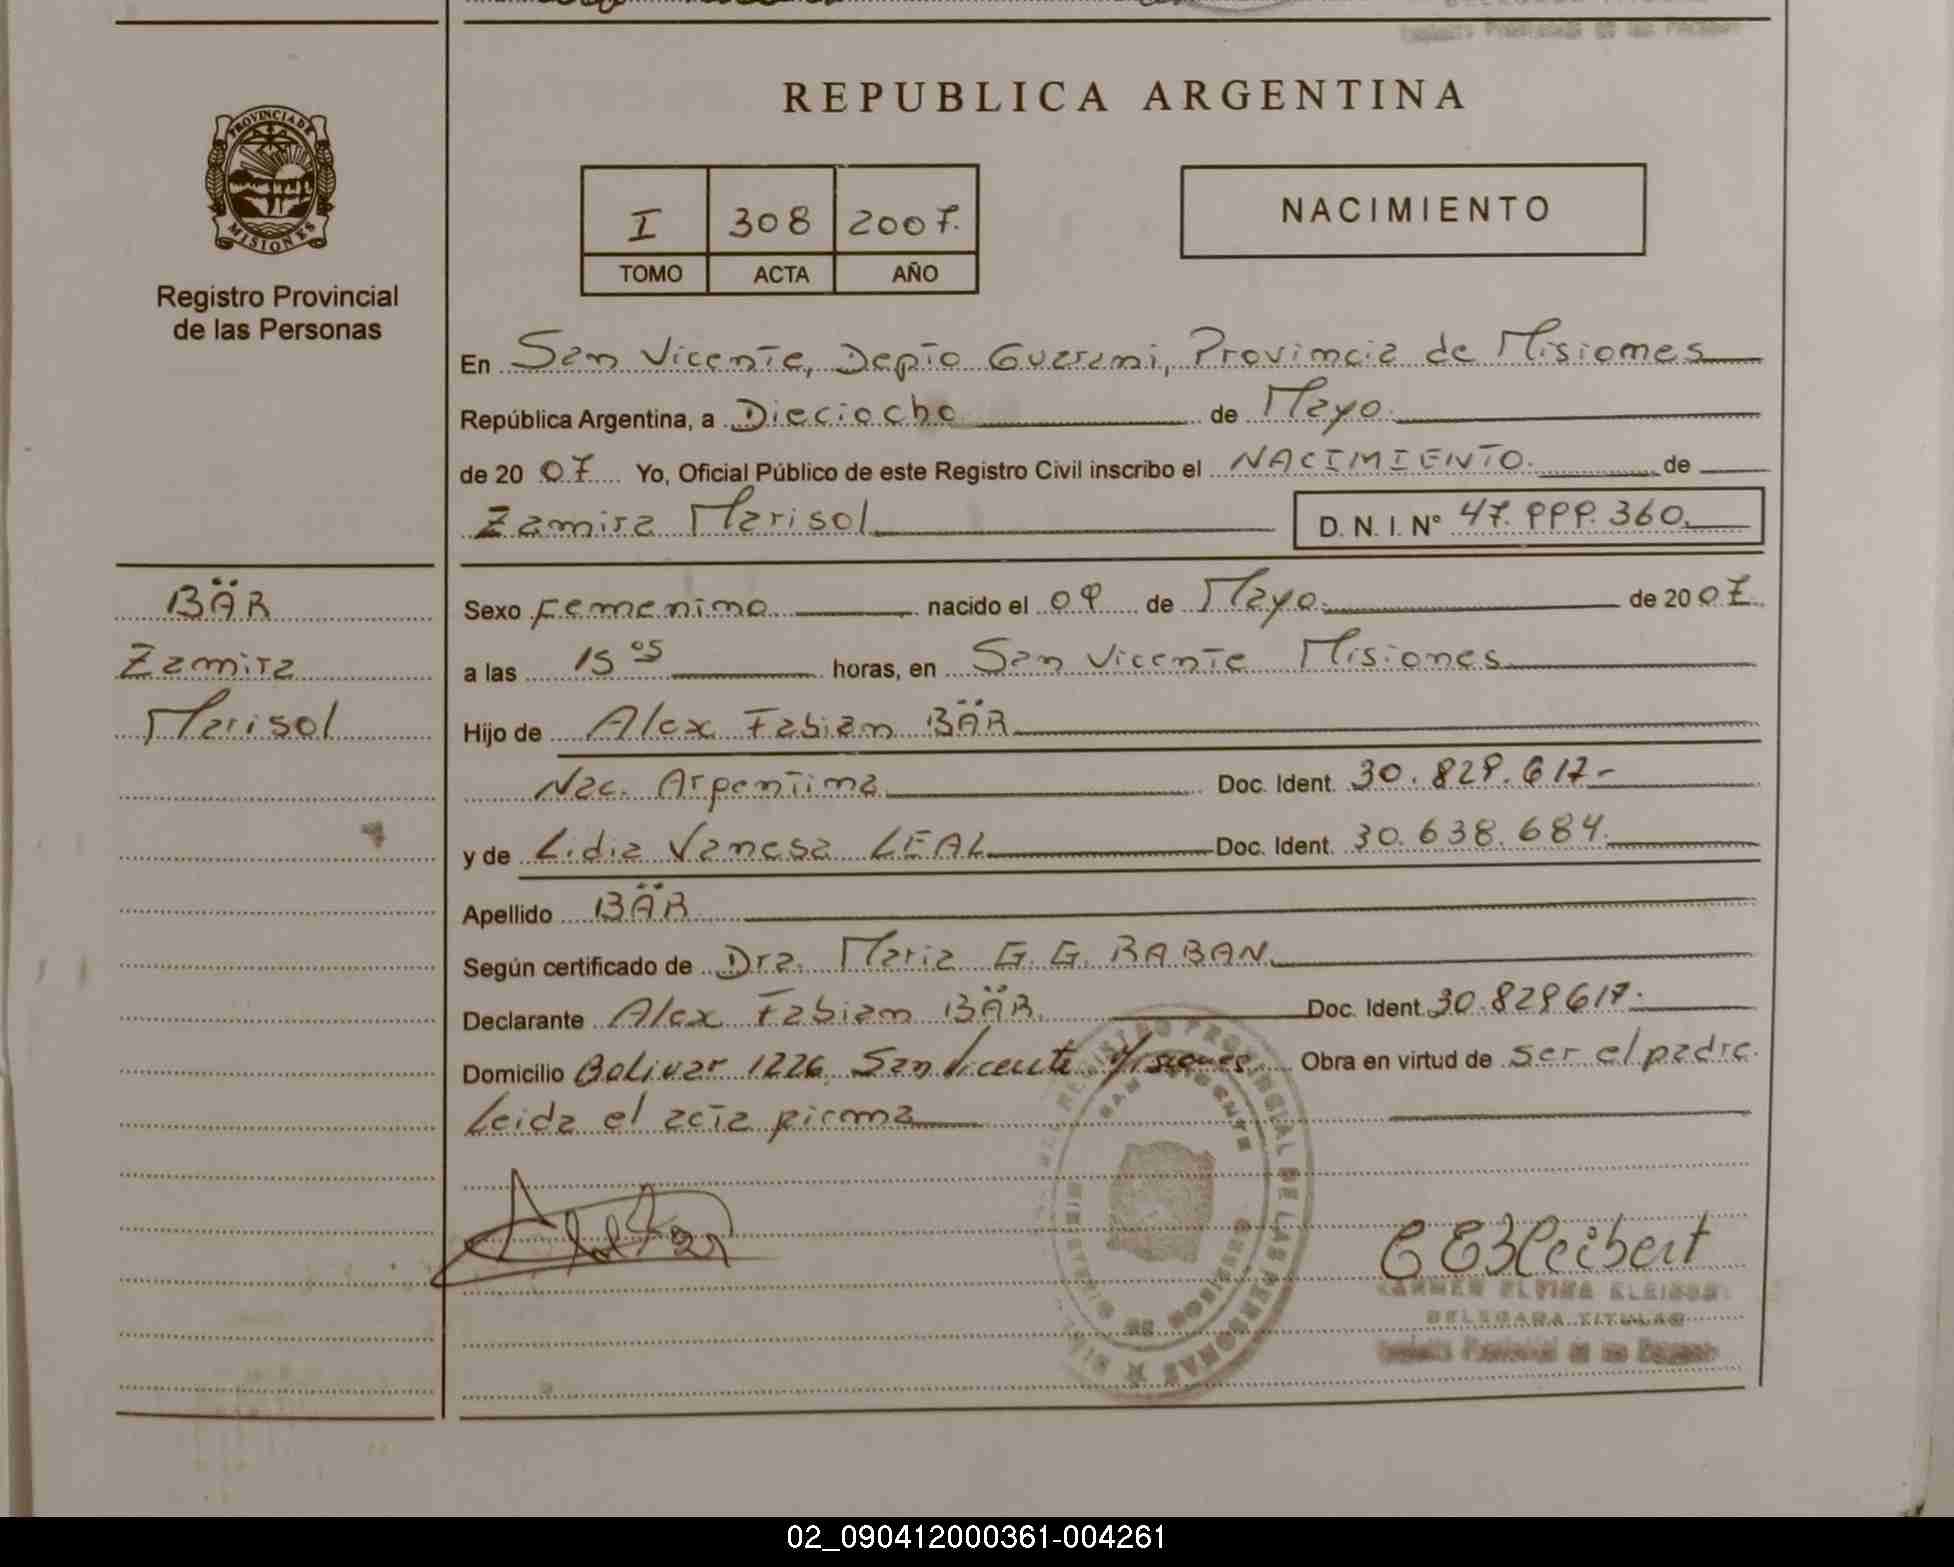 REPUBLICA ARGENTINA
PROVINCIA DE
MISIONES
Registro Provincial
de las Personas
I 308 2007.
TOMO ACTA AÑO
NACIMIENTO
En San Vicente, Depto Guarani, Provincia de Misiones
República Argentina, a Dieciocho de Mayo
de 2007 Yo, Oficial Público de este Registro Civil inscribo el NACIMIENTO. de
Zamira Marisol D. N. I. N° 47.999.360.
BÄR
Zamira
Marisol
Sexo Femenino nacido el 09 de Mayo de 2007.
a las 15 05 horas, en San Vicente Misiones
Hijo de Alex Fabian BÄR
Nac. Argentina Doc. Ident. 30.829.617-
y de Lidia Vanesa LEAL Doc. Ident. 30.638.684.
Apellido BÄR
Según certificado de Dra. Maria G. G. RABAN.
Declarante Alex Fabian BÄR. Doc. Ident. 30.829617.
Domicilio Bolivar 1226 San Vicente Misiones. Obra en virtud de ser el padre.
Leida el acta firma
REGISTRO PROVINCIAL DE LAS PERSONAS
SAN VICENTE
MISIONES
C E Kleibert
CARMEN ELVIRA KLEIBERT
DELEGADA TITULAR
Registro Provincial de las Personas
02_090412000361-004261